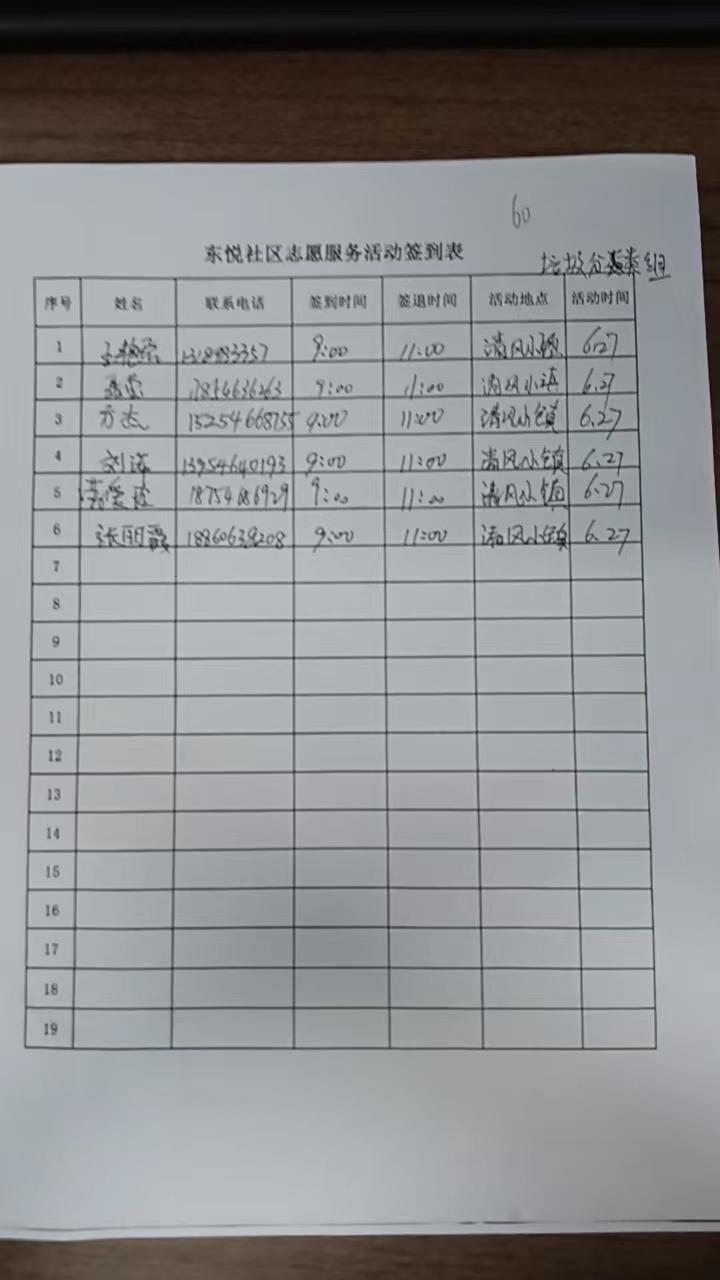 60
东悦社区志愿服务活动签到表
垃圾分类组
序号 姓名 联系电话 签到时间 签退时间 活动地点 活动时间
1 9:00 11:00 清风小镇 6.27
2 9:00 11:00 清风小镇 6.27
3 方杰 15254668755 9:00 11:00 清风小镇 6.27
4 刘涛 13954640193 9:00 11:00 清风小镇 6.27
5 18754686929 9:00 11:00 清风小镇 6.27
6 张丽霞 18860639208 9:00 11:00 清风小镇 6.27
7
8
9
10
11
12
13
14
15
16
17
18
19